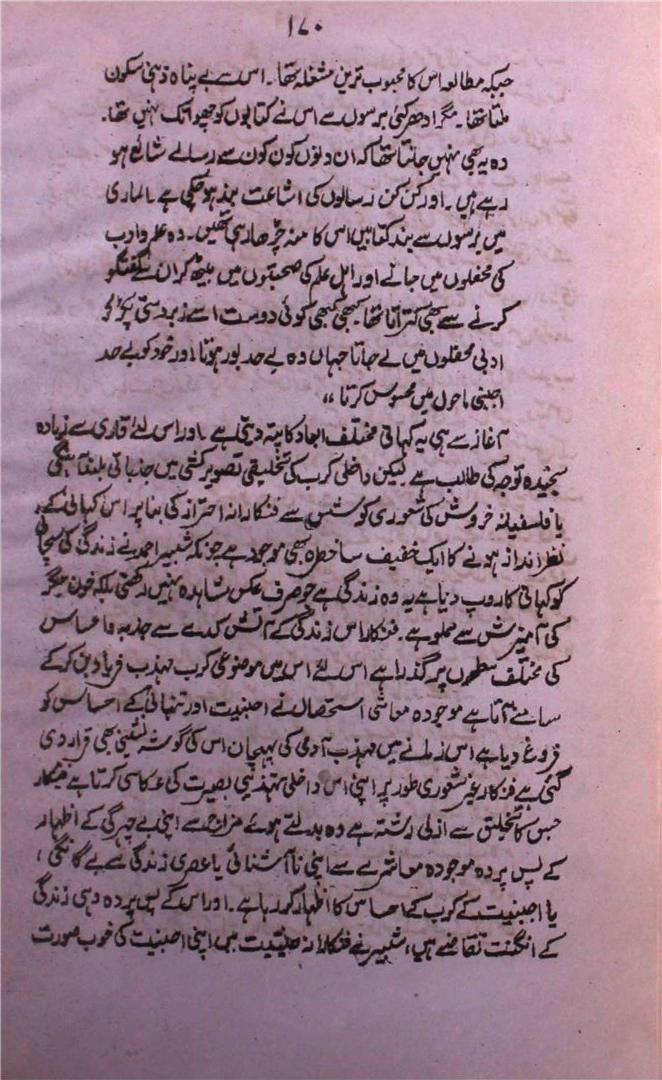 ۱۷۰
جبکہ مطالعہ اس کا محبوب ترین مشغلہ تھا۔ اس سے بے پناہ ذہنی سکون
ملتا تھا۔ مگر ادھر کئی برسوں سے اس نے کتابوں کو چھوا تک نہیں تھا۔
وہ یہ بھی نہیں جانتا تھا کہ ان دنوں کون کون سے رسالے شائع ہو
رہے ہیں۔ اور کن کن رسالوں کی اشاعت بند ہو چکی ہے۔ الماری
میں برسوں سے بند کتابیں اس کا منہ چڑھا رہی تھیں۔ وہ علم و ادب
کی محفلوں میں جانے اور اہل علم کی صحبتوں میں بیٹھ کر ان سے گفتگو
کرنے سے بھی کتراتا تھا۔ کبھی کبھی کوئی دوست اسے زبردستی پکڑ کر
ادبی محفلوں میں لے جاتا جہاں وہ بے حد بور ہوتا، اور خود کو بے حد
اجنبی ماحول میں محسوس کرتا ،،
آغاز سے ہی یہ کہانی مختلف ابعاد کا پتہ دیتی ہے۔ اور اس لئے قاری سے زیادہ
سنجیدہ توجہ کی طالب ہے لیکن داخلی کرب کی تخلیقی تصویر کشی میں جذباتی بلند آہنگی
یا فلسفیانہ خروش کی شعوری کوشش سے فنکارانہ احتراز کی بنا پر اس کہانی کے
نظر انداز ہونے کا ایک خفیف سا خطرہ بھی موجود ہے چونکہ شبیر احمد نے زندگی کی سچائی
کو کہانی کا روپ دیا ہے یہ وہ زندگی ہے جو صرف عکس مشاہدہ نہیں رکھتی بلکہ خون جگر
کی آمیزش سے مملو ہے۔ فنکار اس زندگی کے آتش کدے سے جذبہ و احساس
کی مختلف سطحوں پر گذرا ہے اس لئے اس میں موضوعی کرب مہذب فریاد بن کر کے
سامنے آتا ہے موجودہ معاشی استحصال نے اجنبیت اور تنہائی کے احساس کو
فروغ دیا ہے اس زمانے میں مہذب آدمی کی پہچان اس کی گوشہ نشینی بھی قرار دی
گئی ہے فنکار غیر شعوری طور پر اپنی اس داخلی تہذیبی بصیرت کی عکاسی کرتا ہے فنکار
جس کا تخلیق سے ازلی رشتہ ہے وہ بدلتے ہوئے مزاج سے اپنی بے چہرگی کے اظہار
کے پس پردہ موجودہ معاشرے سے اپنی نا آشنائی یا عصری زندگی سے بے گانگی ،
یا اجنبیت کے کرب کے احساس کا اظہار کر رہا ہے۔ اور اس کے پس پردہ وہی زندگی
کے انگنت تقاضے ہیں، شبیر نے فنکارانہ حیثیت میں اپنی اجنبیت کی خوب صورت